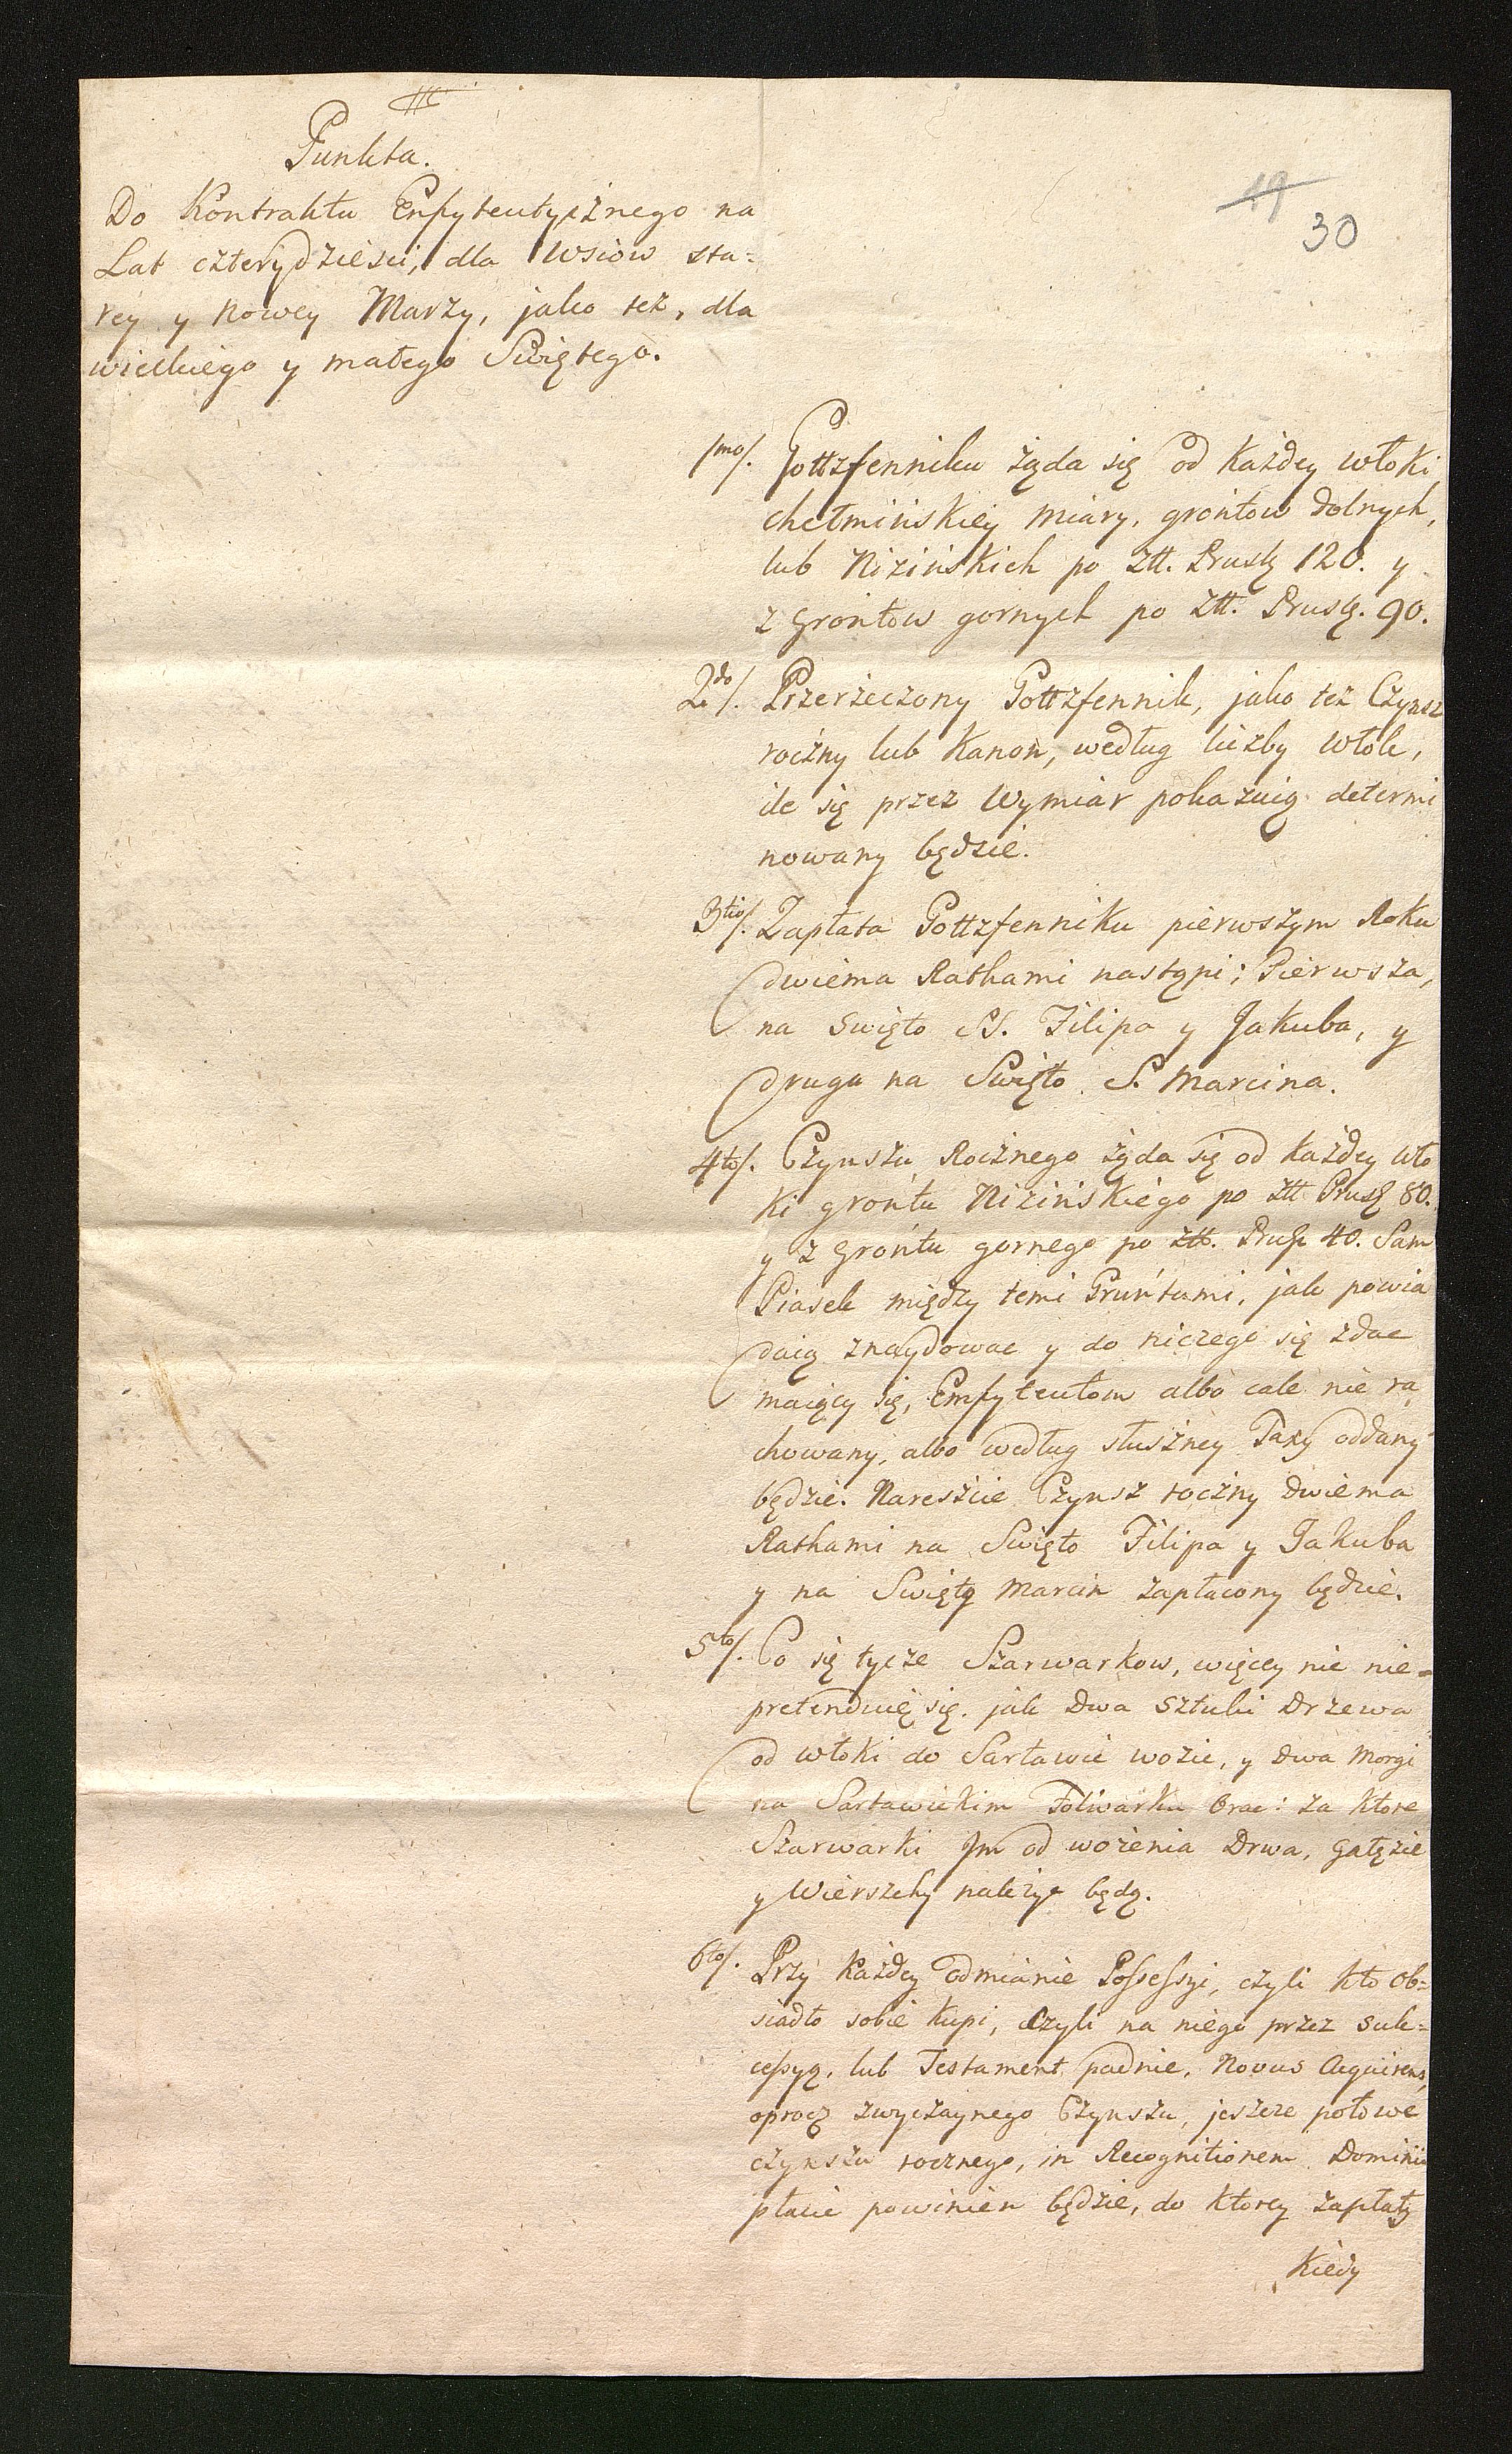 Punkta.
Do Kontraktu Enfyteutycżnego na
Lat czterydzieści, dla Wsiow sta=
rey y nowey Marzy, jako też, dla
wielkiego y małego Swiętego.
19
30
1mo/. Gottzfenniku żąda się od każdey włoki
chełmińskiey miary, grontow dolnych,
lub Nizińskich po Ztt. Prusk 120. y
z grontow gornych po Ztt. Prusk. 90.
2do/. Przerzeczony Gottzfennik, jako też Czynsz
rocżny lub Kanon, według liczby włok,
ile się przez Wymiar pokażuią determi
nowany będzie.
3tio/. Zapłata Gottzfenniku pierwszym Roku
dwiema Rathami nastąpi; Pierwsza,
na Swięto SS. Filipa y Jakuba, y
druga na Swięto S. Marcina.
4to/. Czynszu Rocżnego żąda się od każdey wło
ki grontu Nizińskiego po Ztt Prusk 80.
y z grontu gornego po Ztt. Prusk 40. Sam
Piasek między temi Gruntami, jak powia
daią znaydowac y do niczego się zdac
maiący się, Emfyteutom albo cale nie ra
chowany, albo według słuszney Taxy oddany
będzie. Nareszcie Czynsz rocżny dwiema
Rathami na Swięto Filipa y Jakuba
y na Swięty Marcin zapłacony będzie.
5to/. Co się tycze Szarwarkow, więcey nie nie=
pretenduię się. jak dwa sztuki Drzewa
od włoki do Sartawic wozic, y dwa morgi
na Sartawickim Folwarku Orac: za ktore
Szarwarki Im od wozenia Drwa, gałęzie
y Wierszchy należyc będą.
6to/. Przy każdey odmianie Possessyi, czyli kto Ob=
siadło sobie kupi, czyli na niego przez suk=
cessyą, lub Testament padnie, Novus Acquirens,
oprocz zwyczaynego Czynszu, jeszcze połowe
czynszu rocznego, in Recognitionem Dominii
płacic powinien będzie, do ktorey zapłaty
kiedy